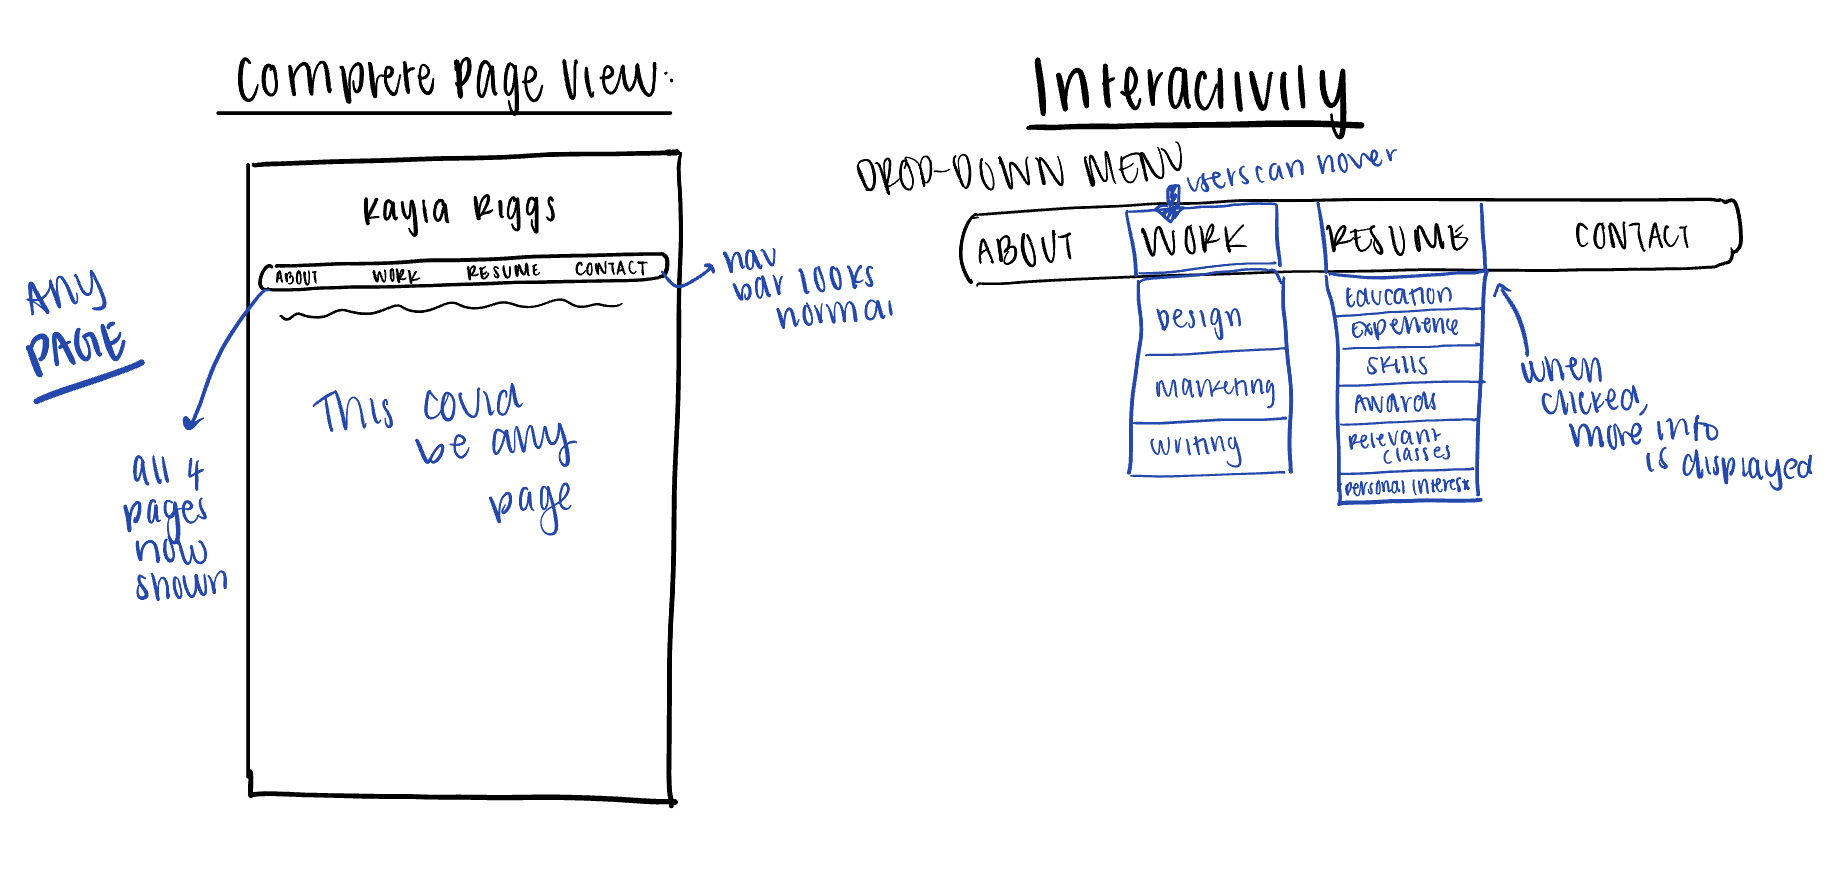 Complete Page View:
Kayla Riggs
ABOUT WORK RESUME CONTACT
nav
bar looks
normal
ANY
PAGE
This could
be any
page
all 4
pages
now
shown
Interactivity
DROP-DOWN MENU
users can hover
ABOUT WORK RESUME CONTACT
Design
Marketing
Writing
Education
Experience
Skills
Awards
Relevant
classes
Personal Interest
when
clicked,
more info
is displayed